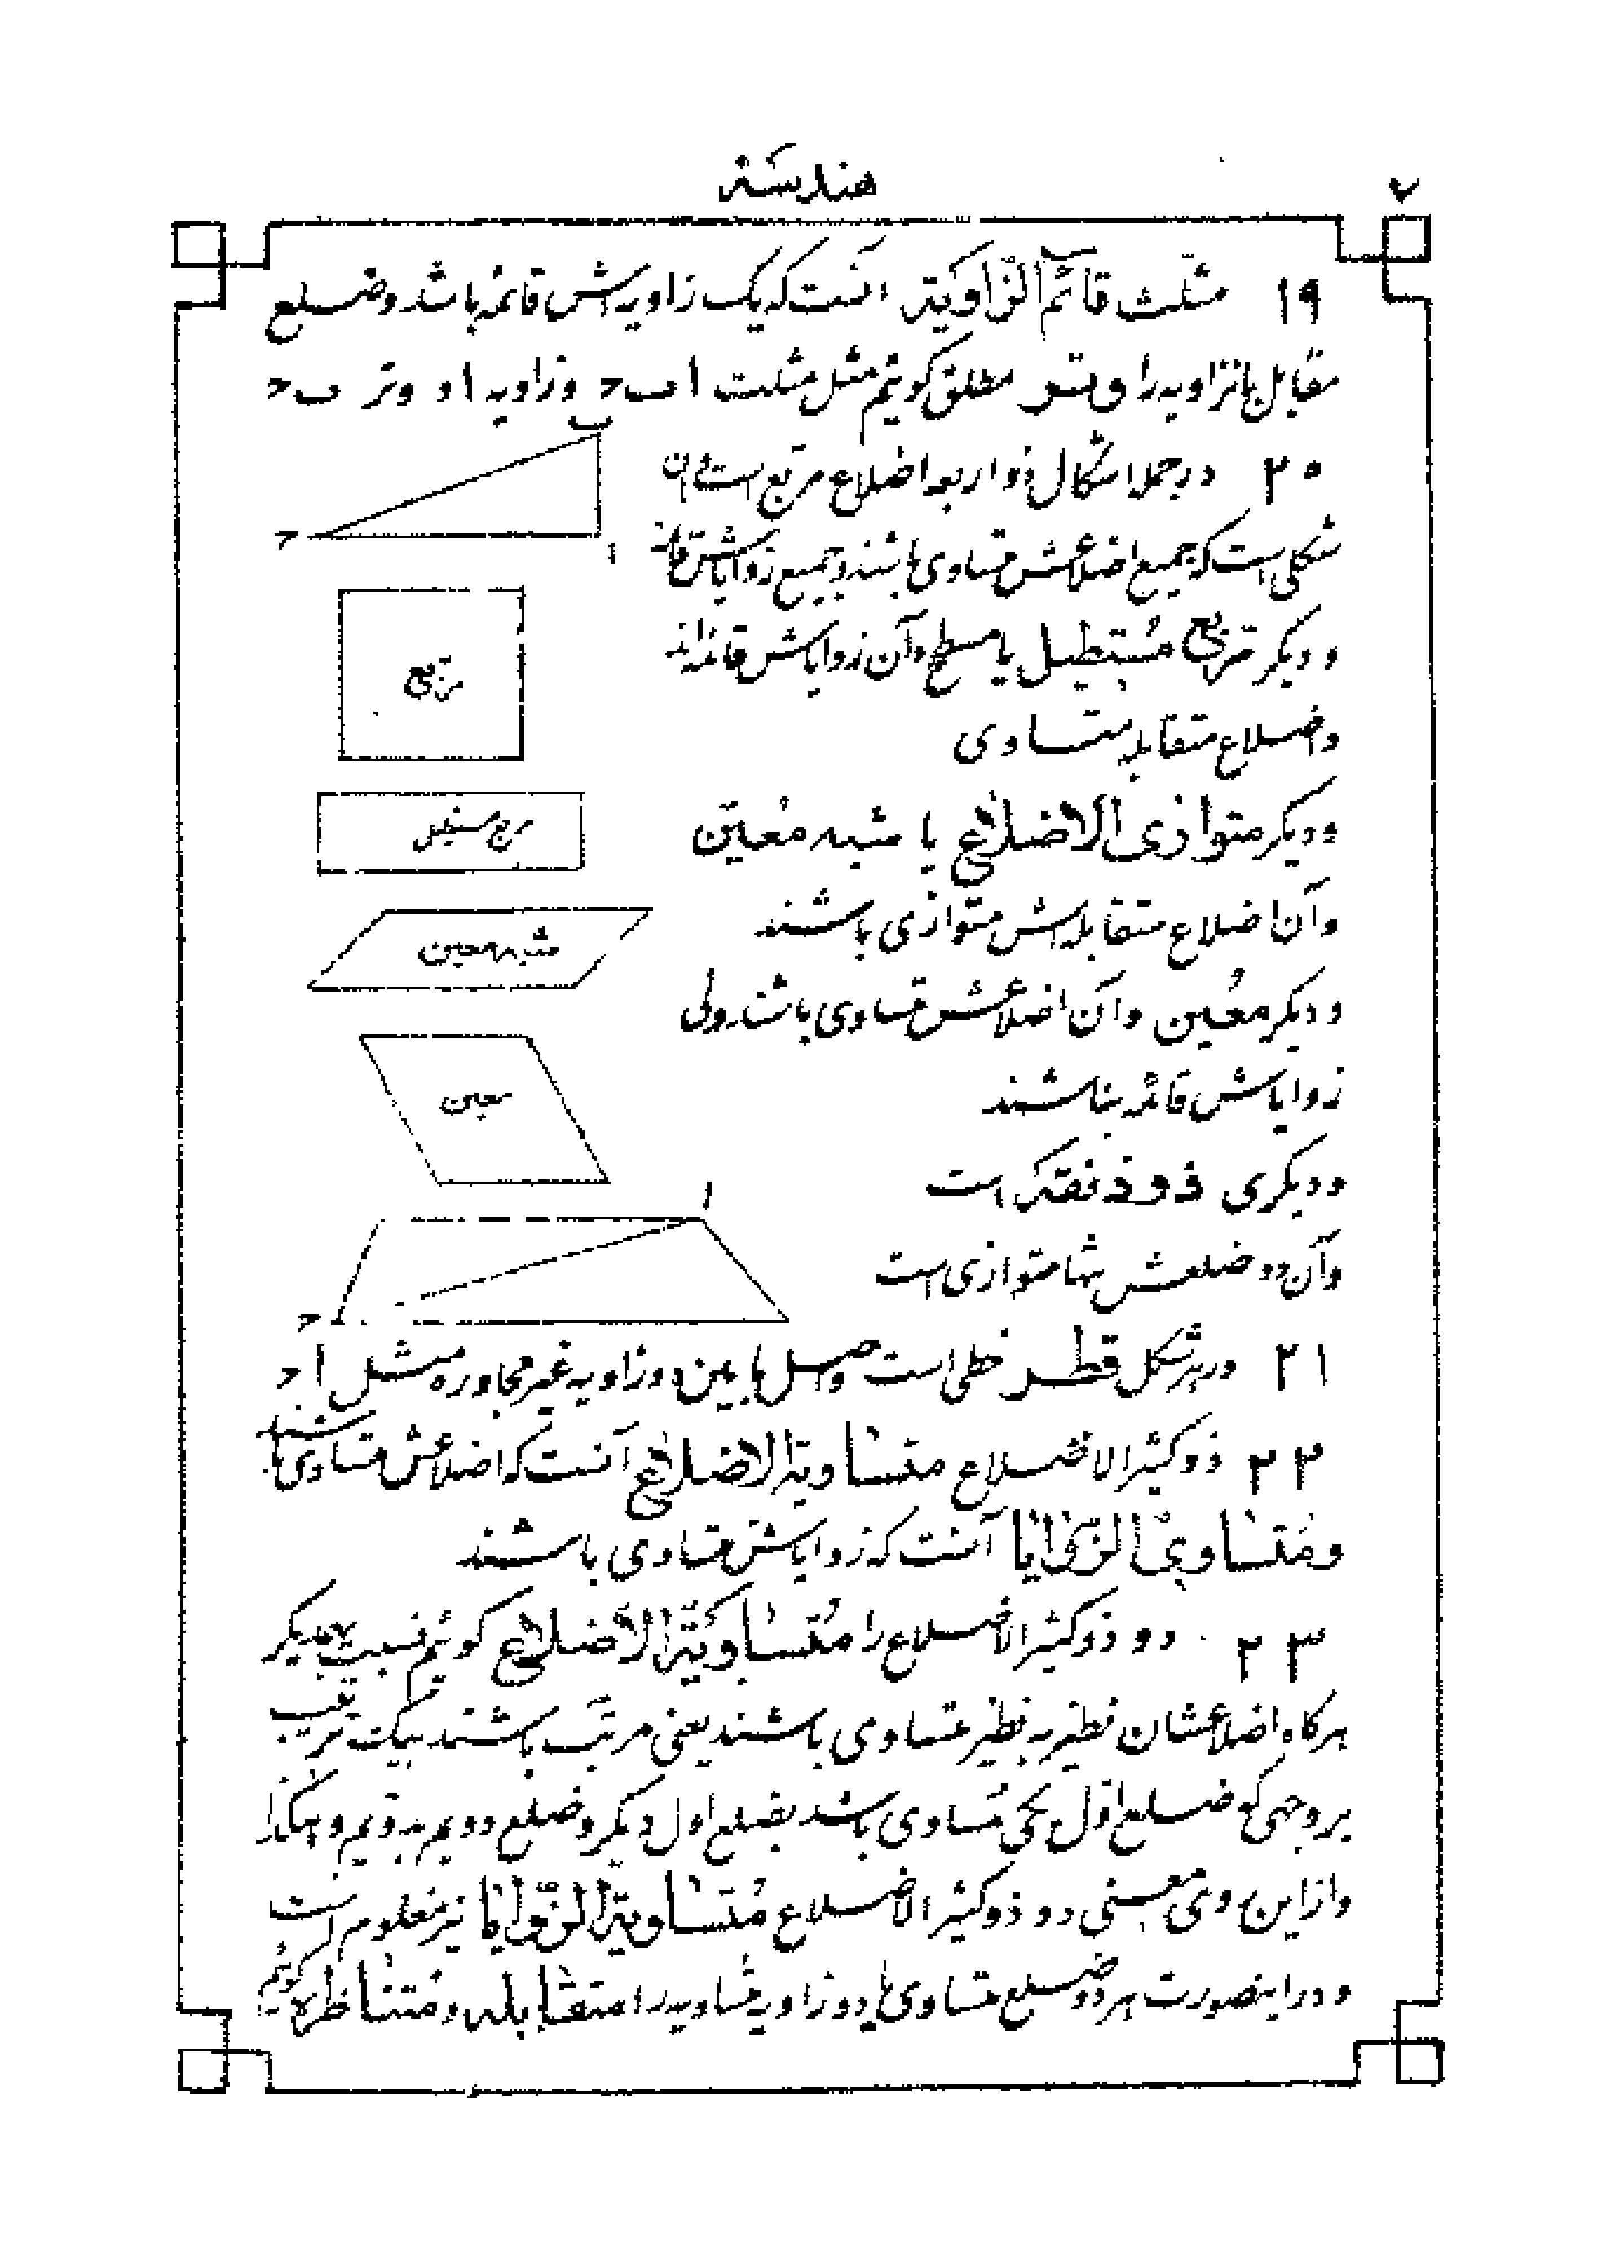 هندسه
۷
۱۹ مثلّث قائم الزّاویة آنست که یک زاویه‌اش قائمه باشد و ضلع
مقابل بانزاویه را وتر مطلق گوئیم مثل مثلث ا ب ح و زاویه ا و وتر ب ح
ب
ح
ا
۲۰ در جمله اشکال ذواربعه اضلاع مربّع است و ان
شکلی است که جمیع اضلاعش متساوی باشند و جمیع زوایاش قائمه
و دیگر مربّع مُستطیل یا مسطح و آن زوایاش قائمه‌اند
مربّع
و اضلاع متقابله متساوی
و دیگر متوازی الاضلاع یا شبه مُعیّن
مربع مستطیل
و آن اضلاع متقابله‌اش متوازی باشند
شبه معین
و دیگر مُعیّن و آن اضلاعش متساوی باشند ولی
زوایاش قائمه نباشند
معین
و دیگری ذوذنقه است
ا
و آن دو ضلعش تنها متوازی است
ح
۲۱ در هر شکل قطر خطی است واصل مابین دو زاویه غیر مجاوره مثل ا ح
۲۲ ذو کثیر الاضلاع متساویة الاضلاع آنست که اضلاعش متساوی باشند
و مُتساوی الزّوایا آنست که زوایاش متساوی باشند
۲۳ دو ذو کثیر الاضلاع را مُتساویَة الاضلاع گوئیم نسبت بیکدیگر
هرگاه اضلاعشان نظیر به نظیر متساوی باشند یعنی مرتّب باشند بیک ترتیب
بر وجهی که ضلع اوّل یکی مُساوی باشد بضلع اول دیگر و ضلع دویم به دویم و هکذا
و از این روی معنی دو ذو کثیر الاضلاع مُتساویة الزّوایا نیز معلوم است
و در اینصورت هر دو ضلع متساوی یا دو زاویه متساویه را متقابله و مُتناظره گوئیم